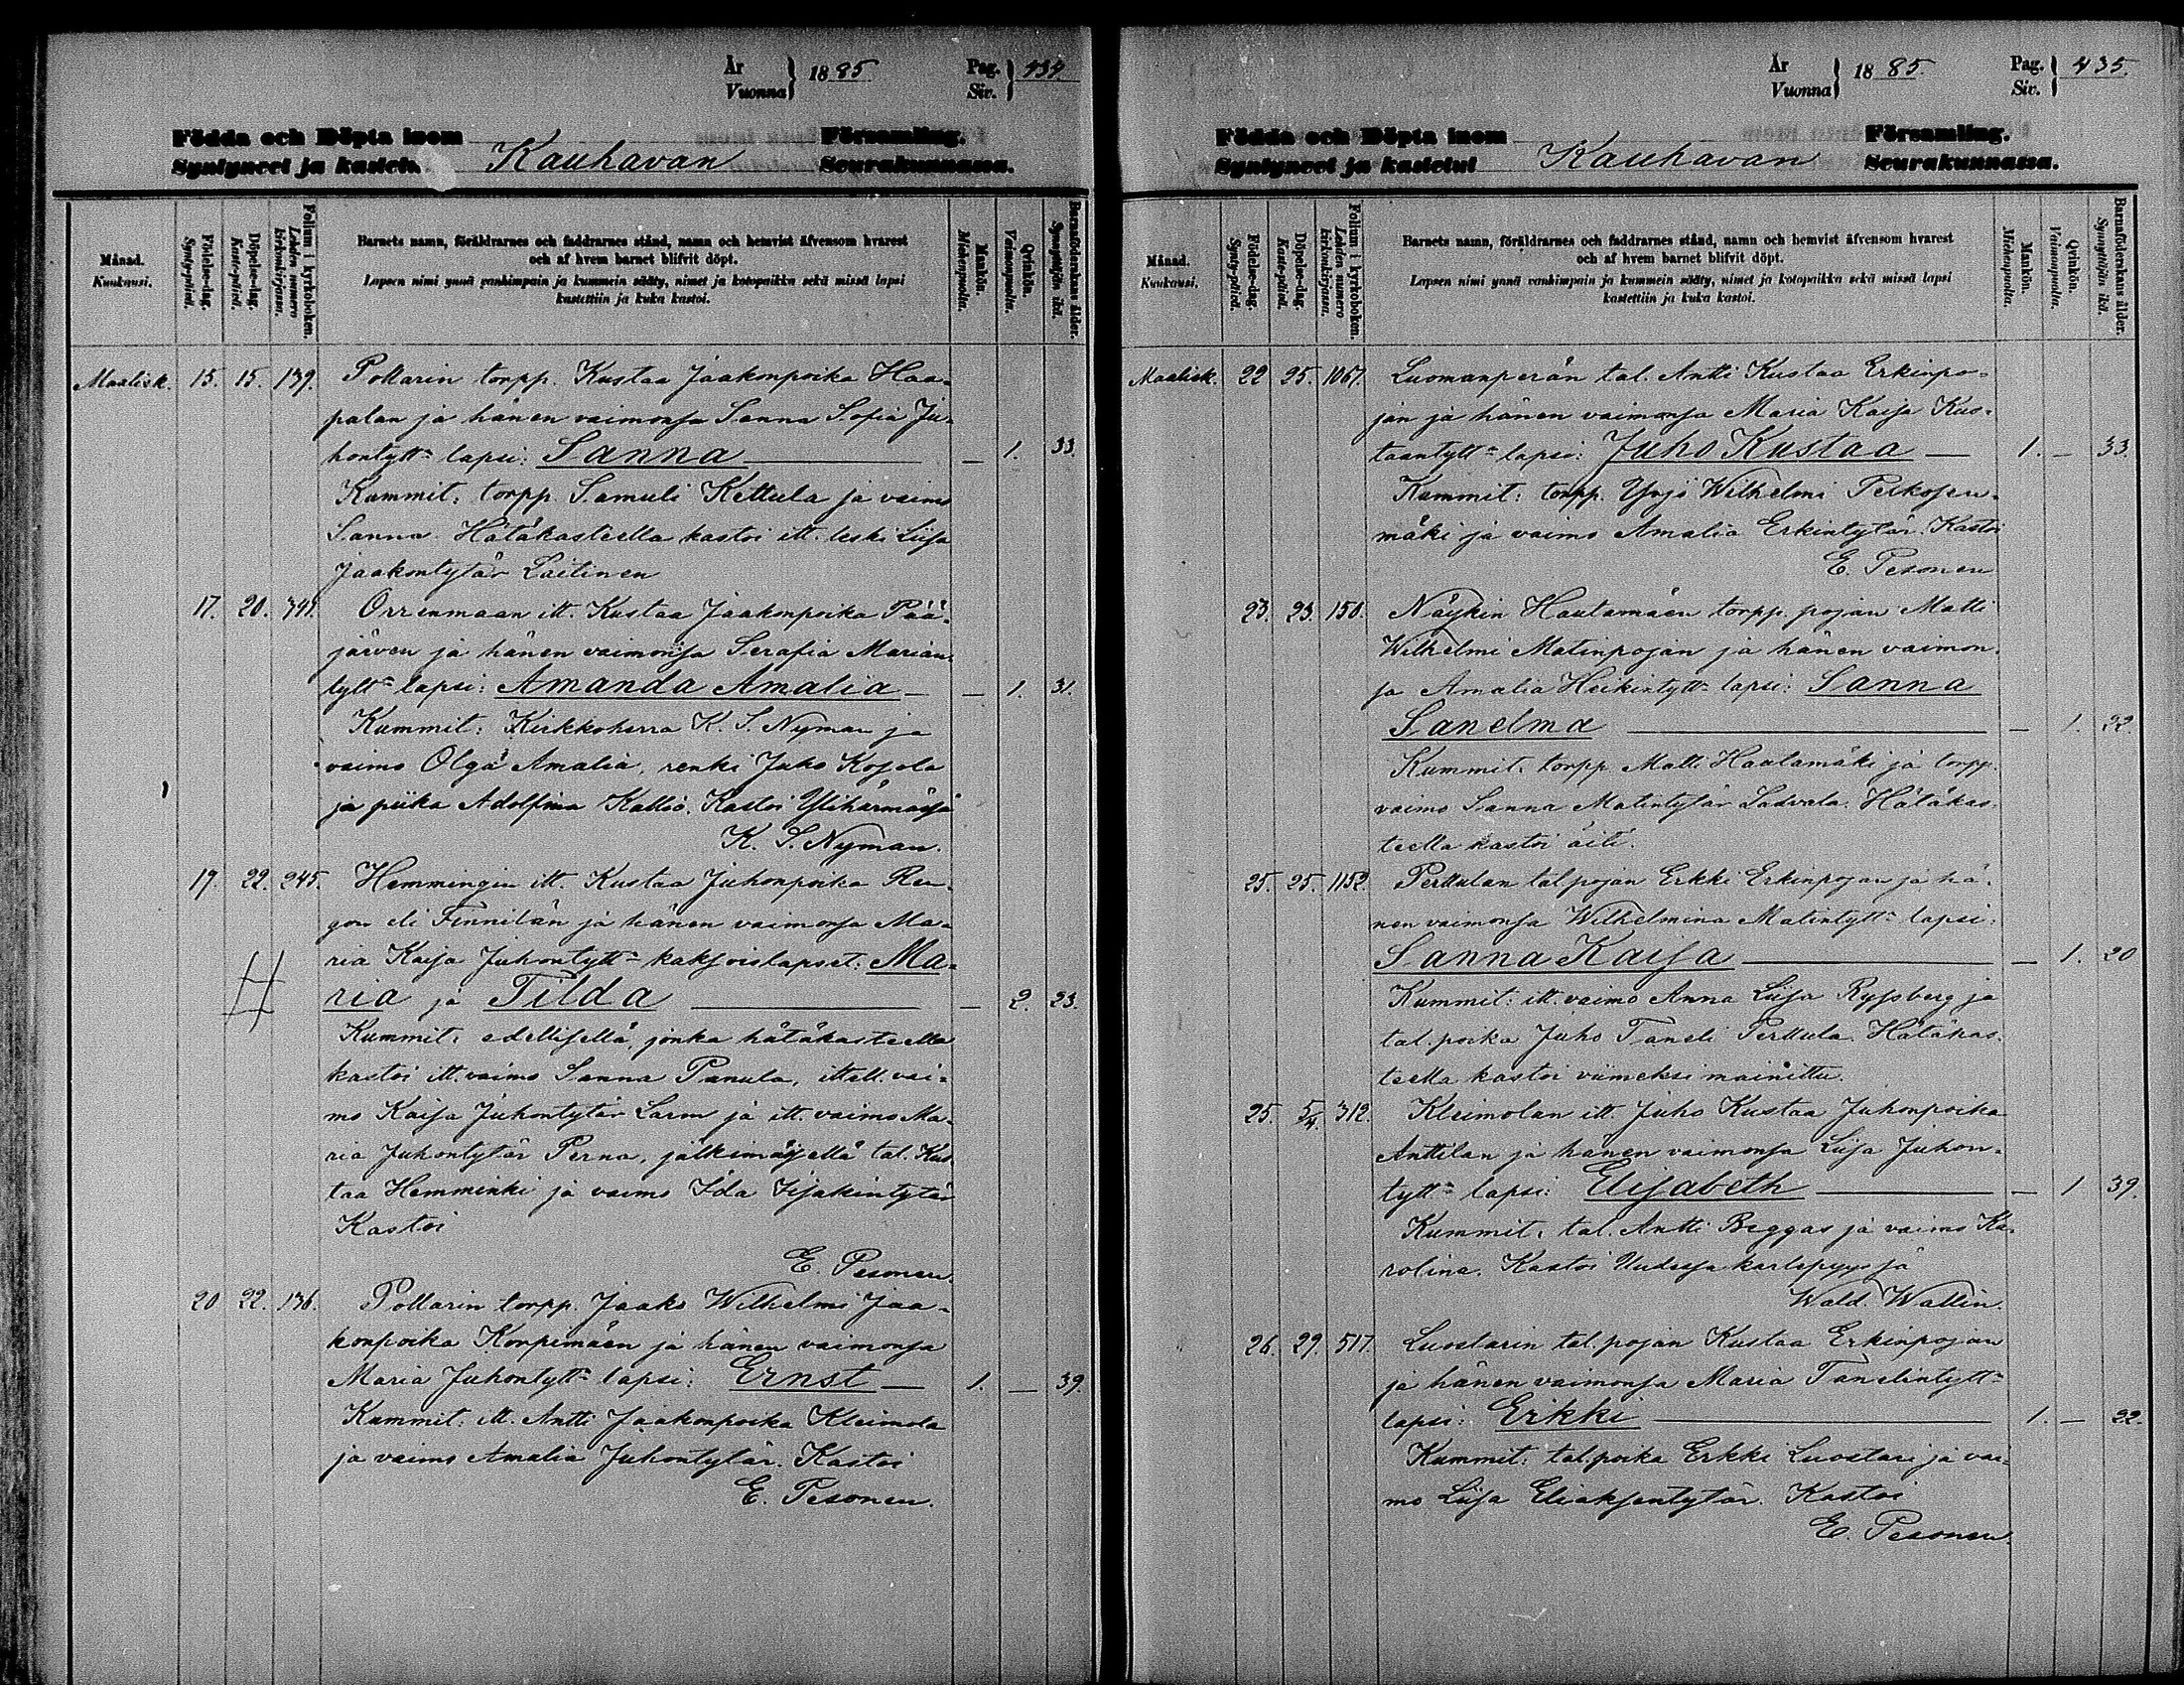 År
Vuonna } 1885 Pag.
Siv. } 434
Födda och Döpta inom Församling.
Syntyneet ja kastet. Kauhavan Seurakunnassa.
Månad.
Kuukausi.
Födelse-dag.
Synty-päivä.
Döpelse-dag.
Kaste-päivä.
Folium i kyrkoboken.
Lehden numero kirkonkirjassa.
Barnets namn, föräldrarnes och faddrarnes stånd, namn och hemvist äfvensom hvarest
och af hvem barnet blifvit döpt.
Lapsen nimi ynnä vanhimpain ja kummein sääty, nimet ja kotopaikka sekä missä lapsi
kastettiin ja kuka kastoi.
Mankön.
Miehenpuolta.
Qvinkön.
Vaimonpuolta.
Barnaföderskans ålder.
Synnyttäjän ikä.
Maalisk. 15. 15. 139. Pollarin torpp. Kustaa Jaakonpoika Haa-
palan ja hänen vaimonsa Sanna Sofia Ju-
hontytt- lapsi: Sanna — 1. 33.
Kummit: torpp. Samuli Kettula ja vaimo
Sanna. Hätäkasteella kastoi itt. leski Liisa
Jaakontytär Laitinen
17. 20. Orrenmaan itt. Kustaa Jaakonpoika Pää-
järven ja hänen vaimonsa Serafia Marian-
tytt- lapsi: Amanda Amalia — — 1. 31.
Kummit: Kirkkoherra K. S. Nyman ja
vaimo Olga Amalia, renki Juho Kojola
ja piika Adolfina Kallio. Kastoi Ylihärmässä
K. S. Nyman.
19. 22. 245. Hemmingin itt. Kustaa Juhonpoika Ren-
gon eli Finnilän ja hänen vaimonsa Ma-
ria Kaisa Juhontytt- kaksoislapset: Ma-
ria ja Tilda — — 2. 23.
Kummit: edellisellä, jonka hätäkasteella
kastoi itt. vaimo Sanna Panula, ittell. vai-
mo Kaisa Juhontytär Larm ja itt. vaimo Ma-
ria Juhontytär Perna, jälkimäisellä tal. Kus-
taa Hemminki ja vaimo Ida Iisakintytär
Kastoi
E. Pesonen.
20 22. 136. Pollarin torpp. Jaako Wilhelmi Jaa-
konpoika Korpimäen ja hänen vaimonsa
Maria Juhontytt- lapsi: Ernst — 1. — 39.
Kummit: itt. Antti Jaakonpoika Kleimola
ja vaimo Amalia Juhontytär. Kastoi
E. Pesonen.
År
Vuonna } 1885. Pag.
Siv. } 435.
Födda och Döpta inom Församling.
Syntyneet ja kastetut Kauhavan Seurakunnassa.
Månad.
Kuukausi.
Födelse-dag.
Synty-päivä.
Döpelse-dag.
Kaste-päivä.
Folium i kyrkoboken.
Lehden numero kirkonkirjassa.
Barnets namn, föräldrarnes och faddrarnes stånd, namn och hemvist äfvensom hvarest
och af hvem barnet blifvit döpt.
Lapsen nimi ynnä vanhimpain ja kummein sääty, nimet ja kotopaikka sekä missä lapsi
kastettiin ja kuka kastoi.
Mankön.
Miehenpuolta.
Qvinkön.
Vaimonpuolta.
Barnaföderskans ålder.
Synnyttäjän ikä.
Maalisk. 22 25. 1067. Luomanperän tal. Antti Kustaa Erkinpo-
jan ja hänen vaimonsa Maria Kaisa Kus-
taantytt- lapsi: Juho Kustaa — 1. — 33.
Kummit: torpp. Yrjö Wilhelmi Peikosen-
mäki ja vaimo Amalia Erkintytär. Kastoi
E. Pesonen
23. 23. 150. Näykin Hautamäen torpp. pojan Matti
Wilhelmi Matinpojan ja hänen vaimon-
sa Amalia Heikintytt- lapsi: Sanna
Sanelma — — 1. 22.
Kummit: torpp. Matti Hautamäki ja torpp.
vaimo Sanna Matintytär Ladvala. Hätäkas-
teella kastoi äiti.
25. 25. 1152. Perttulan tal. pojan Erkki Erkinpojan ja hä-
nen vaimonsa Wilhelmina Matintytt- lapsi:
Sanna Kaisa — — 1. 20
Kummit: itt. vaimo Anna Liisa Ryssberg ja
tal. poika Juho Taneli Perttula. Hätäkas-
teella kastoi viimeksi mainittu.
25. 5/4. 312. Kleimolan itt. Juho Kustaa Juhonpoika
Anttilan ja hänen vaimonsa Liisa Juhon-
tytt- lapsi: Elisabeth — — 1 39.
Kummit: tal. Antti Beggas ja vaimo Ka-
rolina. Kastoi Uudessa karlepyyssä
Wald. Wallin.
26. 29. 517. Luostarin tal. pojan Kustaa Erkinpojan
ja hänen vaimonsa Maria Tanelintytt-
lapsi: Erikki — 1. — 22.
Kummit: tal. poika Erkki Luostari ja vai-
mo Liisa Eliaksentytär. Kastoi
E. Pesonen.